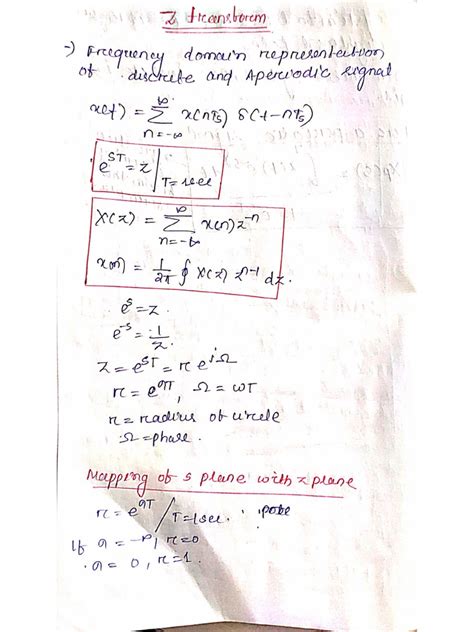 Z transborem
-) Frequency domain representation
of discrete and Aperiodic signal
x(t) = ∞ Σ n=-∞ x(nTs) δ(t-nTs)
e^ST = z | T=1sec
X(z) = ∞ Σ n=-∞ x(n) z^-n
x(n) = 1/2π ∮ X(z) z^n-1 dz.
e^s = z.
e^-s = 1/z.
z = e^ST = r e^jΩ
r = e^σT, Ω = ωT
r = radius of circle
Ω = phase.
Mapping of s plane with z plane
r = e^σT / T=1sec. pole
If σ = -∞, r=0
σ = 0, r=1.